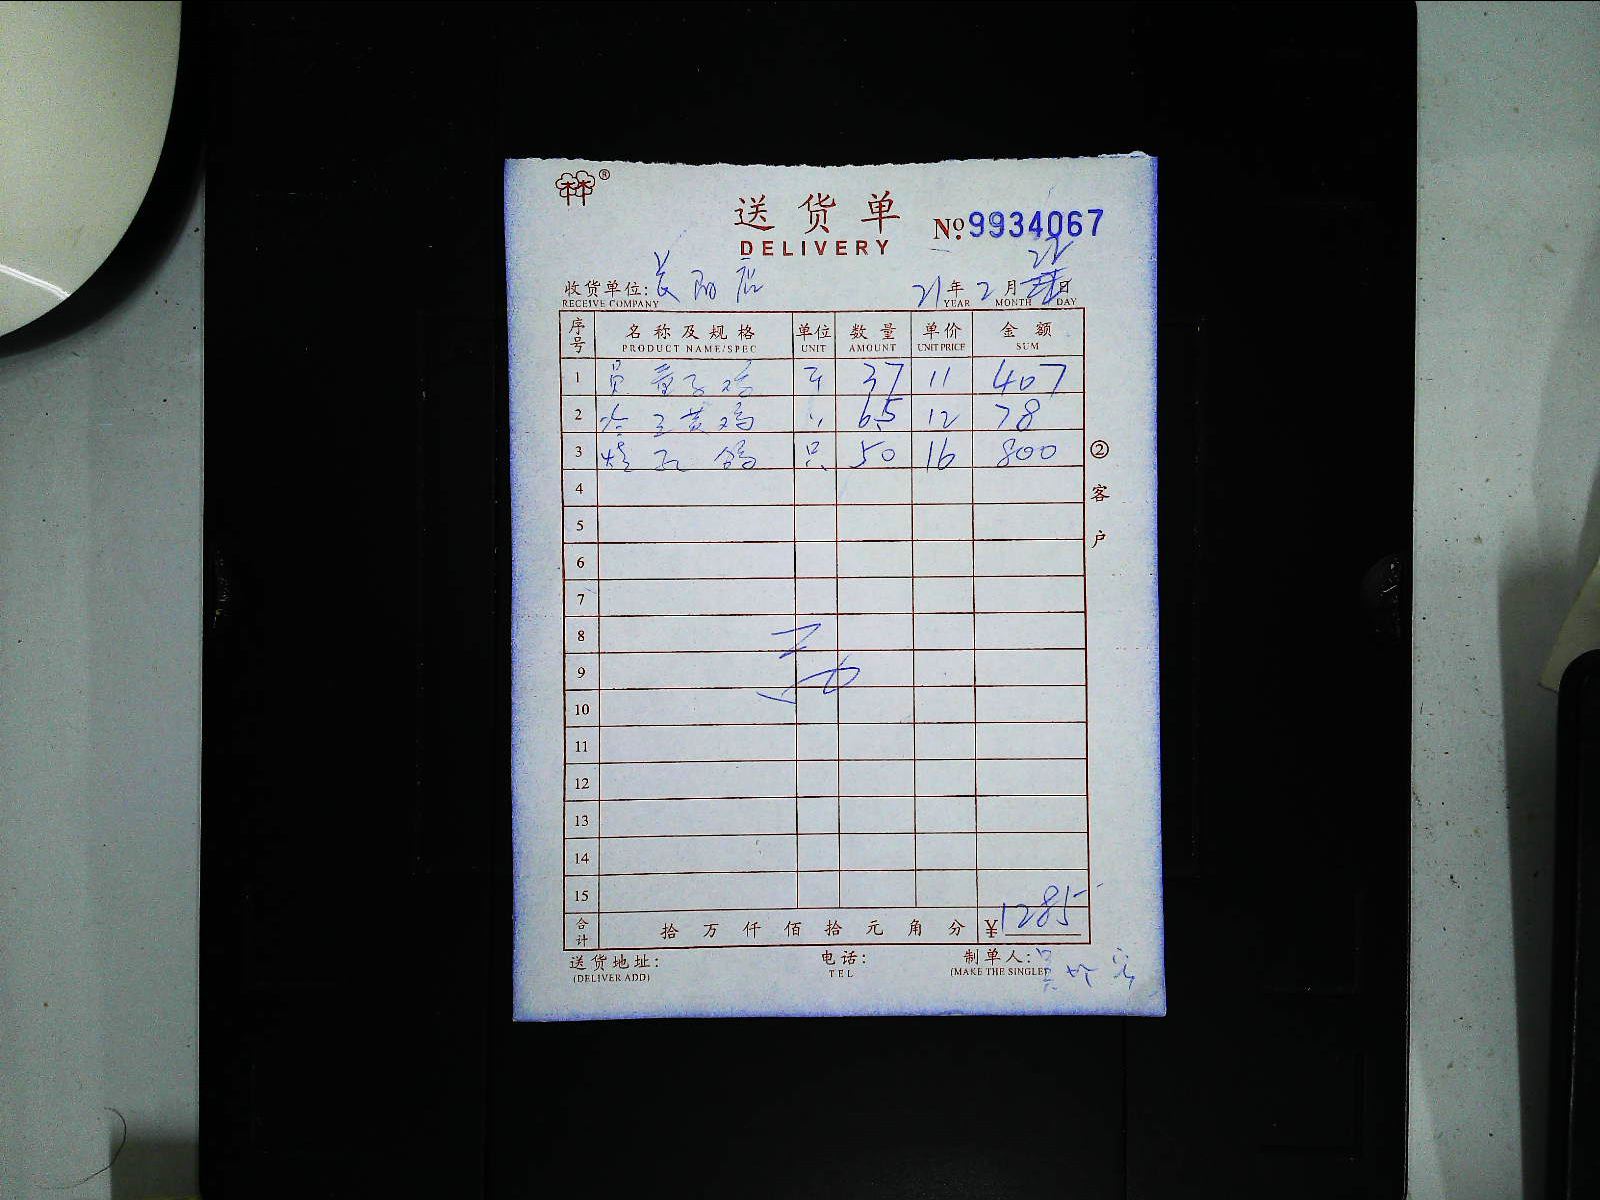 林®
送货单
DELIVERY
№9934067
22
收货单位: 长阳店 21年 2月 日
RECEIVE COMPANY YEAR MONTH DAY
序号 名称及规格 单位 数量 单价 金额
PRODUCT NAME/SPEC UNIT AMOUNT UNIT PRICE SUM
1 童子鸡 斤 37 11 407
2 三黄鸡 〃 6.5 12 78
3 烧孔鸽 只 50 16 800
4
5
6
7
8
9
10
11
12
13
14
15
合计 拾万仟佰拾元角分 ¥1285
送货地址: 电话: 制单人:
(DELIVER ADD) TEL (MAKE THE SINGLE)
②客户